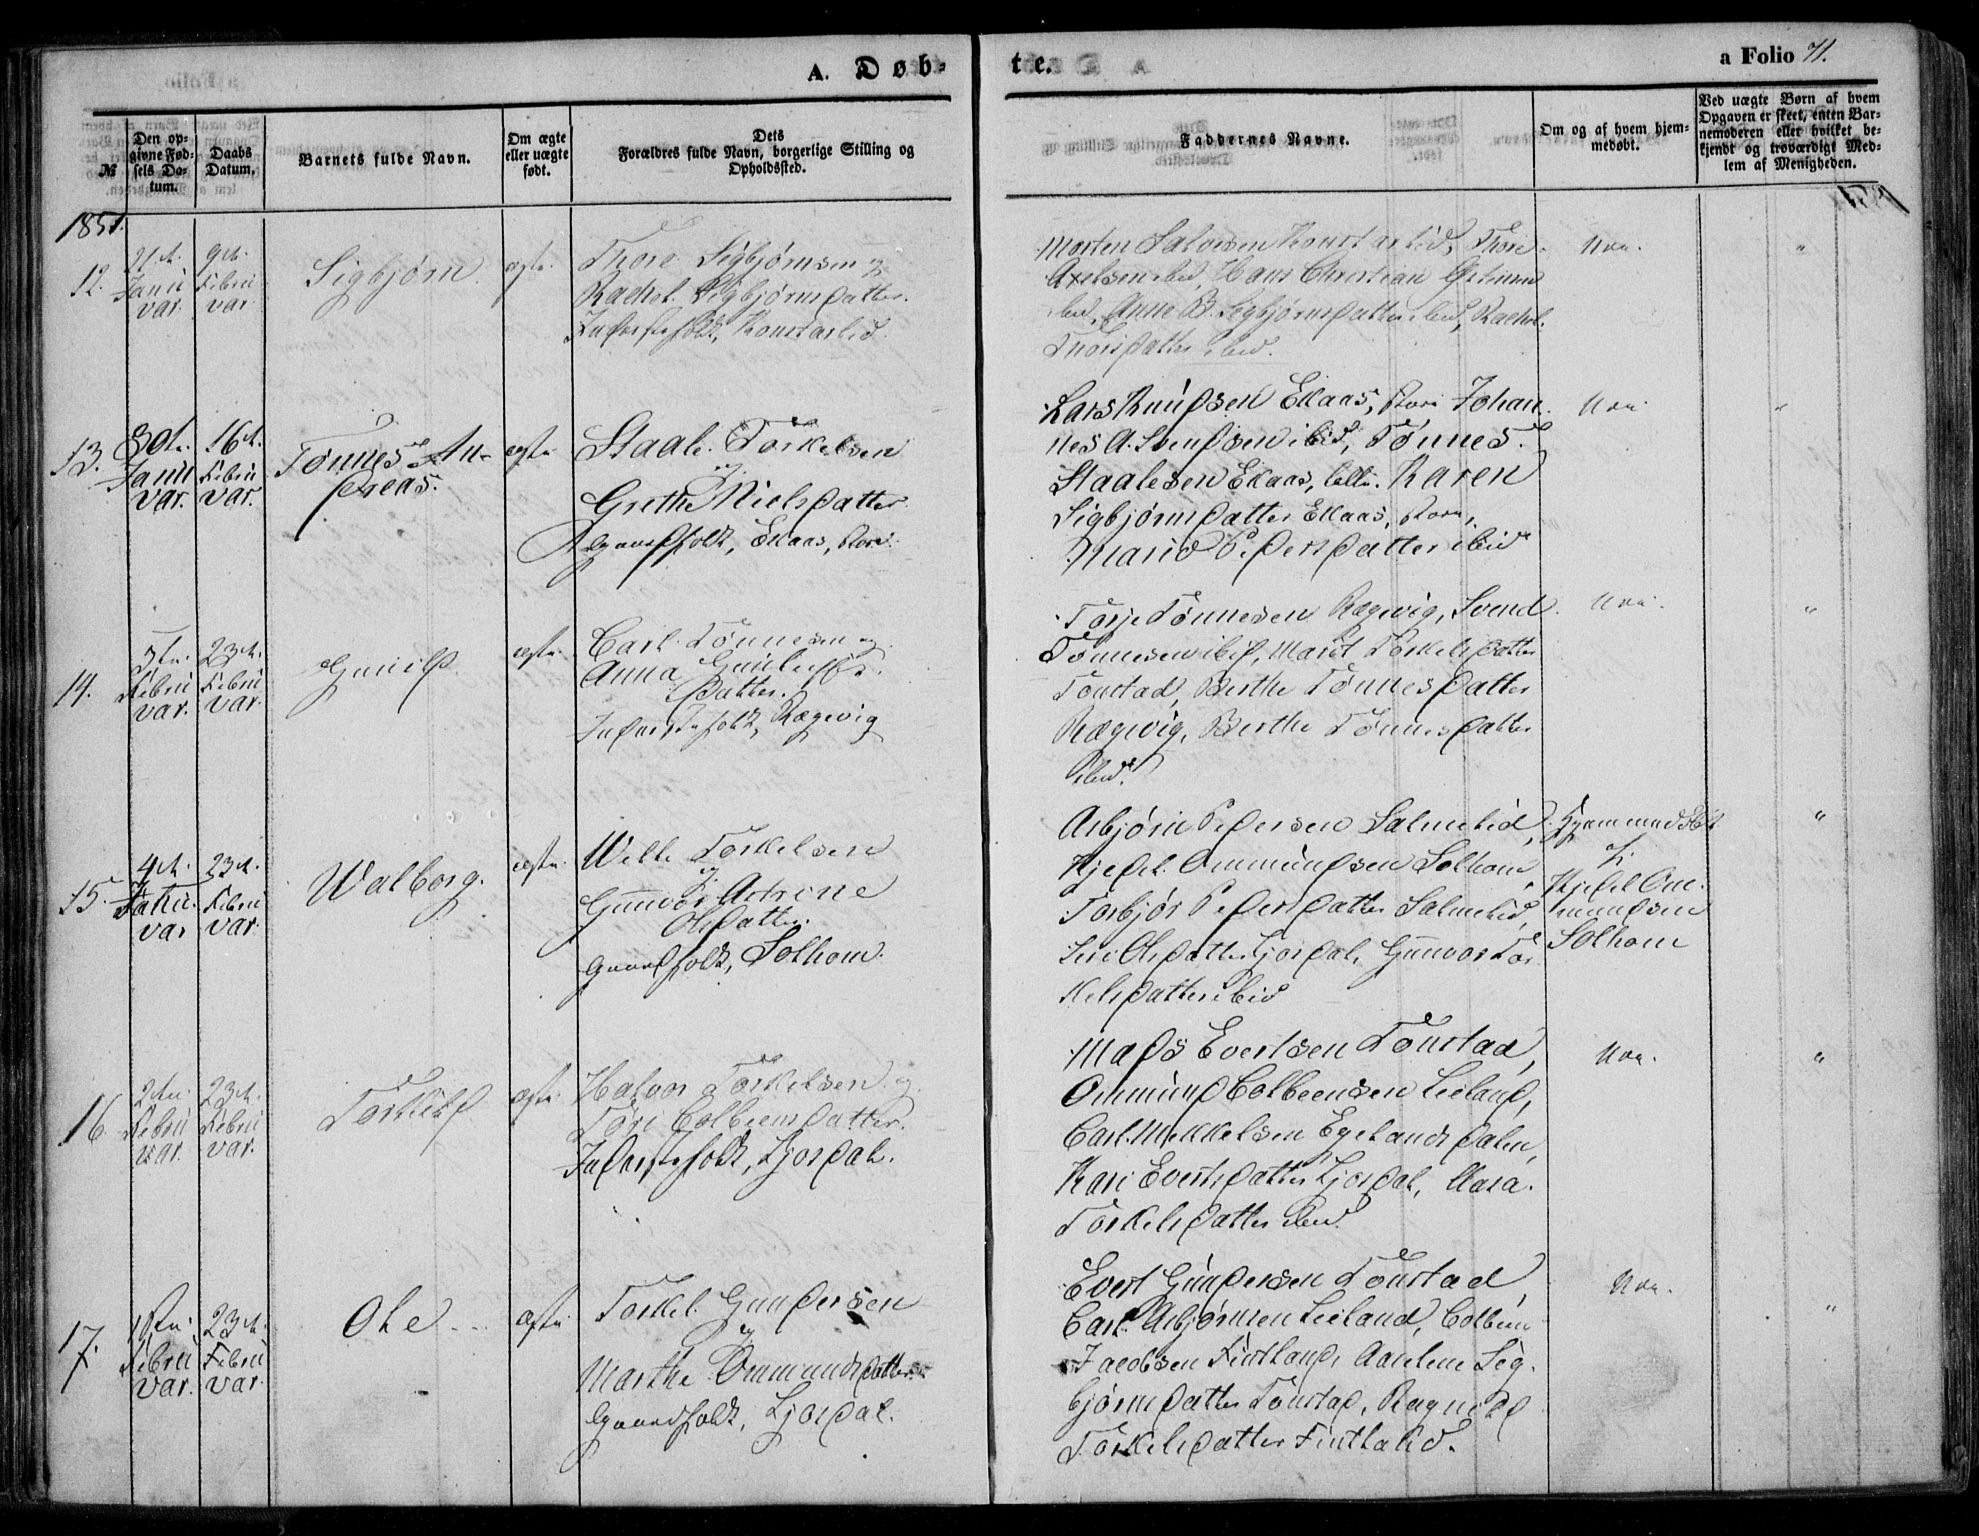 A. Døb-
te.
a Folio 71.
№
Den op-
givne Fød-
sels Da-
tum.
Daabs
Datum.
Barnets fulde Navn.
Om ægte
eller uægte
født.
Dets
Forældres fulde Navn, borgerlige Stilling og
Opholdssted.
Faddernes Navne.
Om og af hvem hjem-
medøbt.
Ved uægte Børn af hvem
Opgaven er skeet, enten Bar-
nemoderen eller hvilket be-
kjendt og troværdigt Med-
lem af Menigheden.
1851.
12.
21de
Janu
var.
9de
Febru
var
Sigbjørn.
ægte.
Thore Sigbjørnsen og
Rachel Sigbjørnsdatter.
Inderstefolk, Konstarlid.
Morten Salvesen Konstarlid, Thore
Axelsen ibid, Hans Christian
ibid, Anne B. Sigbjørnsdatter ibid, Rachel
Thoresdatter ibid.
Nei.
"
13.
30te
Janu
var.
16de
Febru
var.
Tønnes An-
dreas.
ægte
Staale Torkelsen
og
Grethe Nielsdatter
Gaardfolk, Eklaas, store.
Lars Knudsen Eklaas, store Johan
nes A. Svendsen ibid, Tønnes
Staalesen Eklaas, lille. Karen
Sigbjørnsdatter Eklaas, store,
Maria Pedersdatter ibid
Nei
"
14.
5te
Febru
var.
23de
Febru
var.
Gunild
ægte.
Carl Tønnesen og
Anna Gunleifs-
datter.
Inderstefolk, Rægevig
Torje Tønnesen Rægevig, Svend
Tønnesen ibid, Maret Torkelsdatter
Tonstad, Berthe Tønnesdatter
Rægevig, Berthe Tønnesdatter
ibid.
Nei.
"
15.
4de
Janu.
var
23de
Febru
var.
Walborg.
ægte.
Welle Torkelsen
og
Gunvor Adrine
Olsdatter.
Gaardfolk, Solhom.
Asbjørn Pedersen Salmelid,
Kjedel Ommundsen Solhom,
Torbjør Pedersdatter Salmelid,
Siri Olsdatter Ljosdal, Gunvor Tor
kelsdatter ibid
Hjemmedøbt
af
Kjedel Om-
mundsen
Solhom
"
16.
2den
Febru
var.
23de
Febru
var.
Torkild
ægte.
Halvor Torkelsen og
Tori Colbeensdatter.
Inderstefolk, Ljosdal.
Mads Evertsen Tonstad,
Ommund Colbeensen Leeland,
Carl Mikkelsen Egelandsdalen,
Kari Evertsdatter Ljosdal, Aasa
Torkelsdatter ibid.
Nei.
"
17.
Febru
var.
23de
Febru
var.
Ole
ægte
Torkel Gundersen
og
Marthe Ommundsdatter
Gaardfolk, Ljosdal.
Evert Gundersen Tonstad,
Carl Asbjørnsen Leeland, Colbein
Jacobsen Fintland, Aanlene Sig-
bjørnsdatter Tonstad, Ragnild
Torkelsdatter Fintland.
Nei.
"